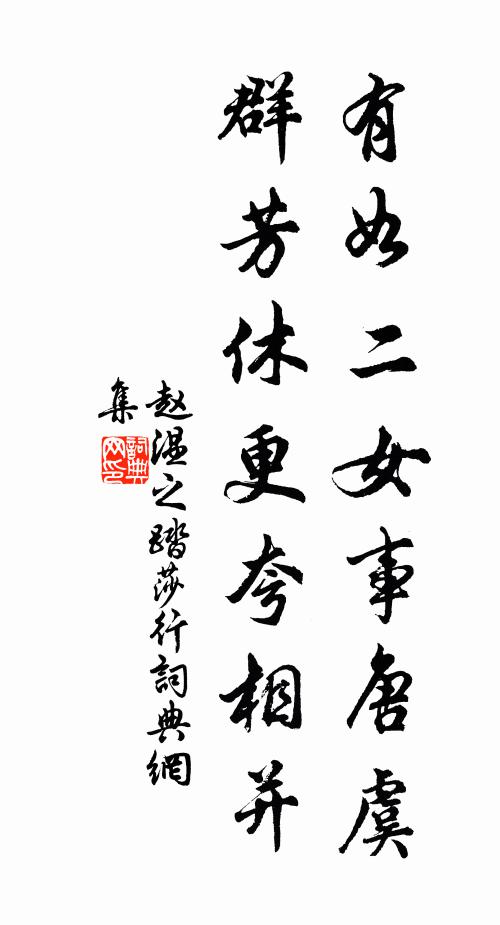 有如二女事唐虞
群芳休更夸相并
赵温之踏莎行词典網
集
詞典網印